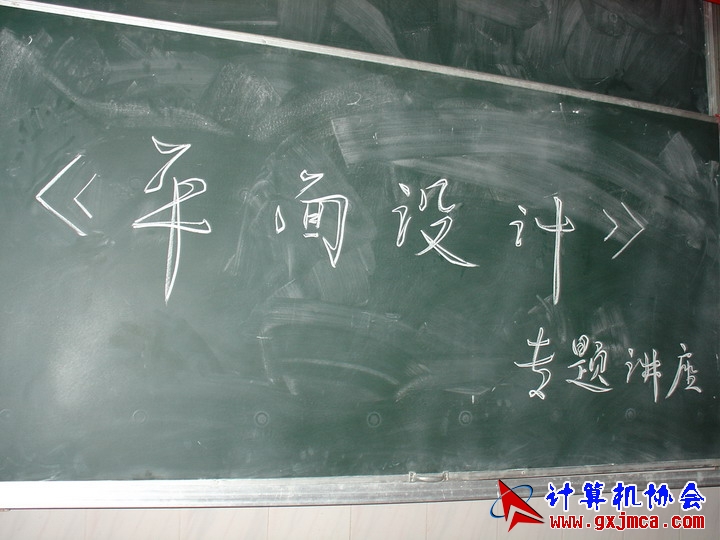 《平面设计》
专题讲座
计算机协会
www.gxjmca.com